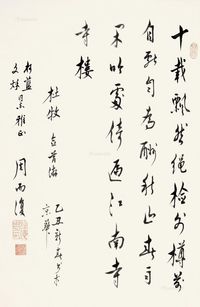 十載飄然繩檢外樽前
自獻自為酬秋山春雨
閒吟處倚遍江南寺
寺樓
杜牧
乙丑新春書於
京華
雅正
周而復